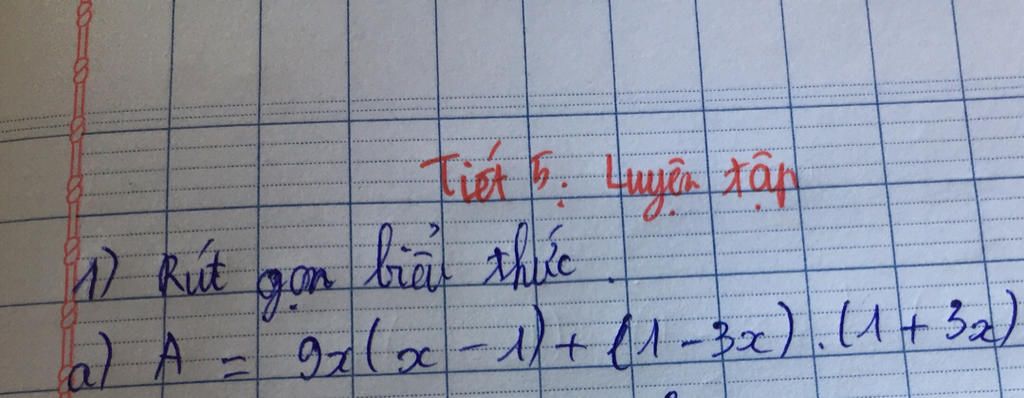 Tiết 5. Luyện tập
1) Rút gọn biểu thức.
a) A = 9x(x - 1) + (1 - 3x).(1 + 3x)